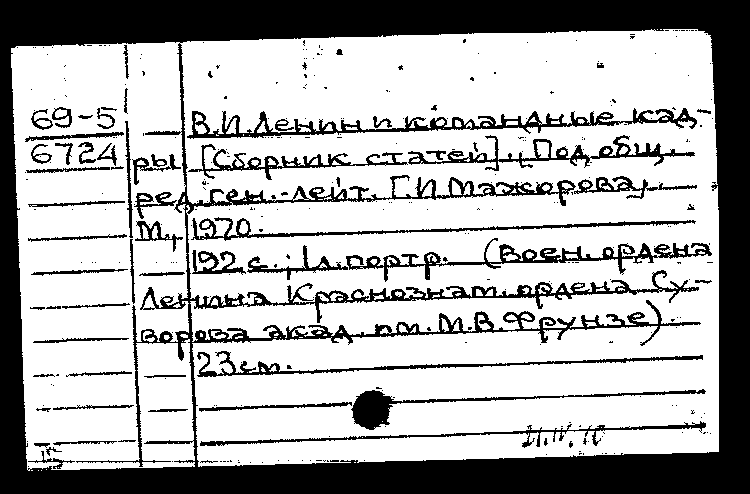 69-5 В.И.Ленин и командные кад-
6724 ры [Сборник статей]. Под общ.
ред. ген.-лейт. Г.И Мажорова.
М., 1970.
192 с.; 1 л. портр. (Воен. ордена
Ленина Краснознам. ордена Су-
ворова акад. им. М.В.Фрунзе).
23 см.
21.IV.70